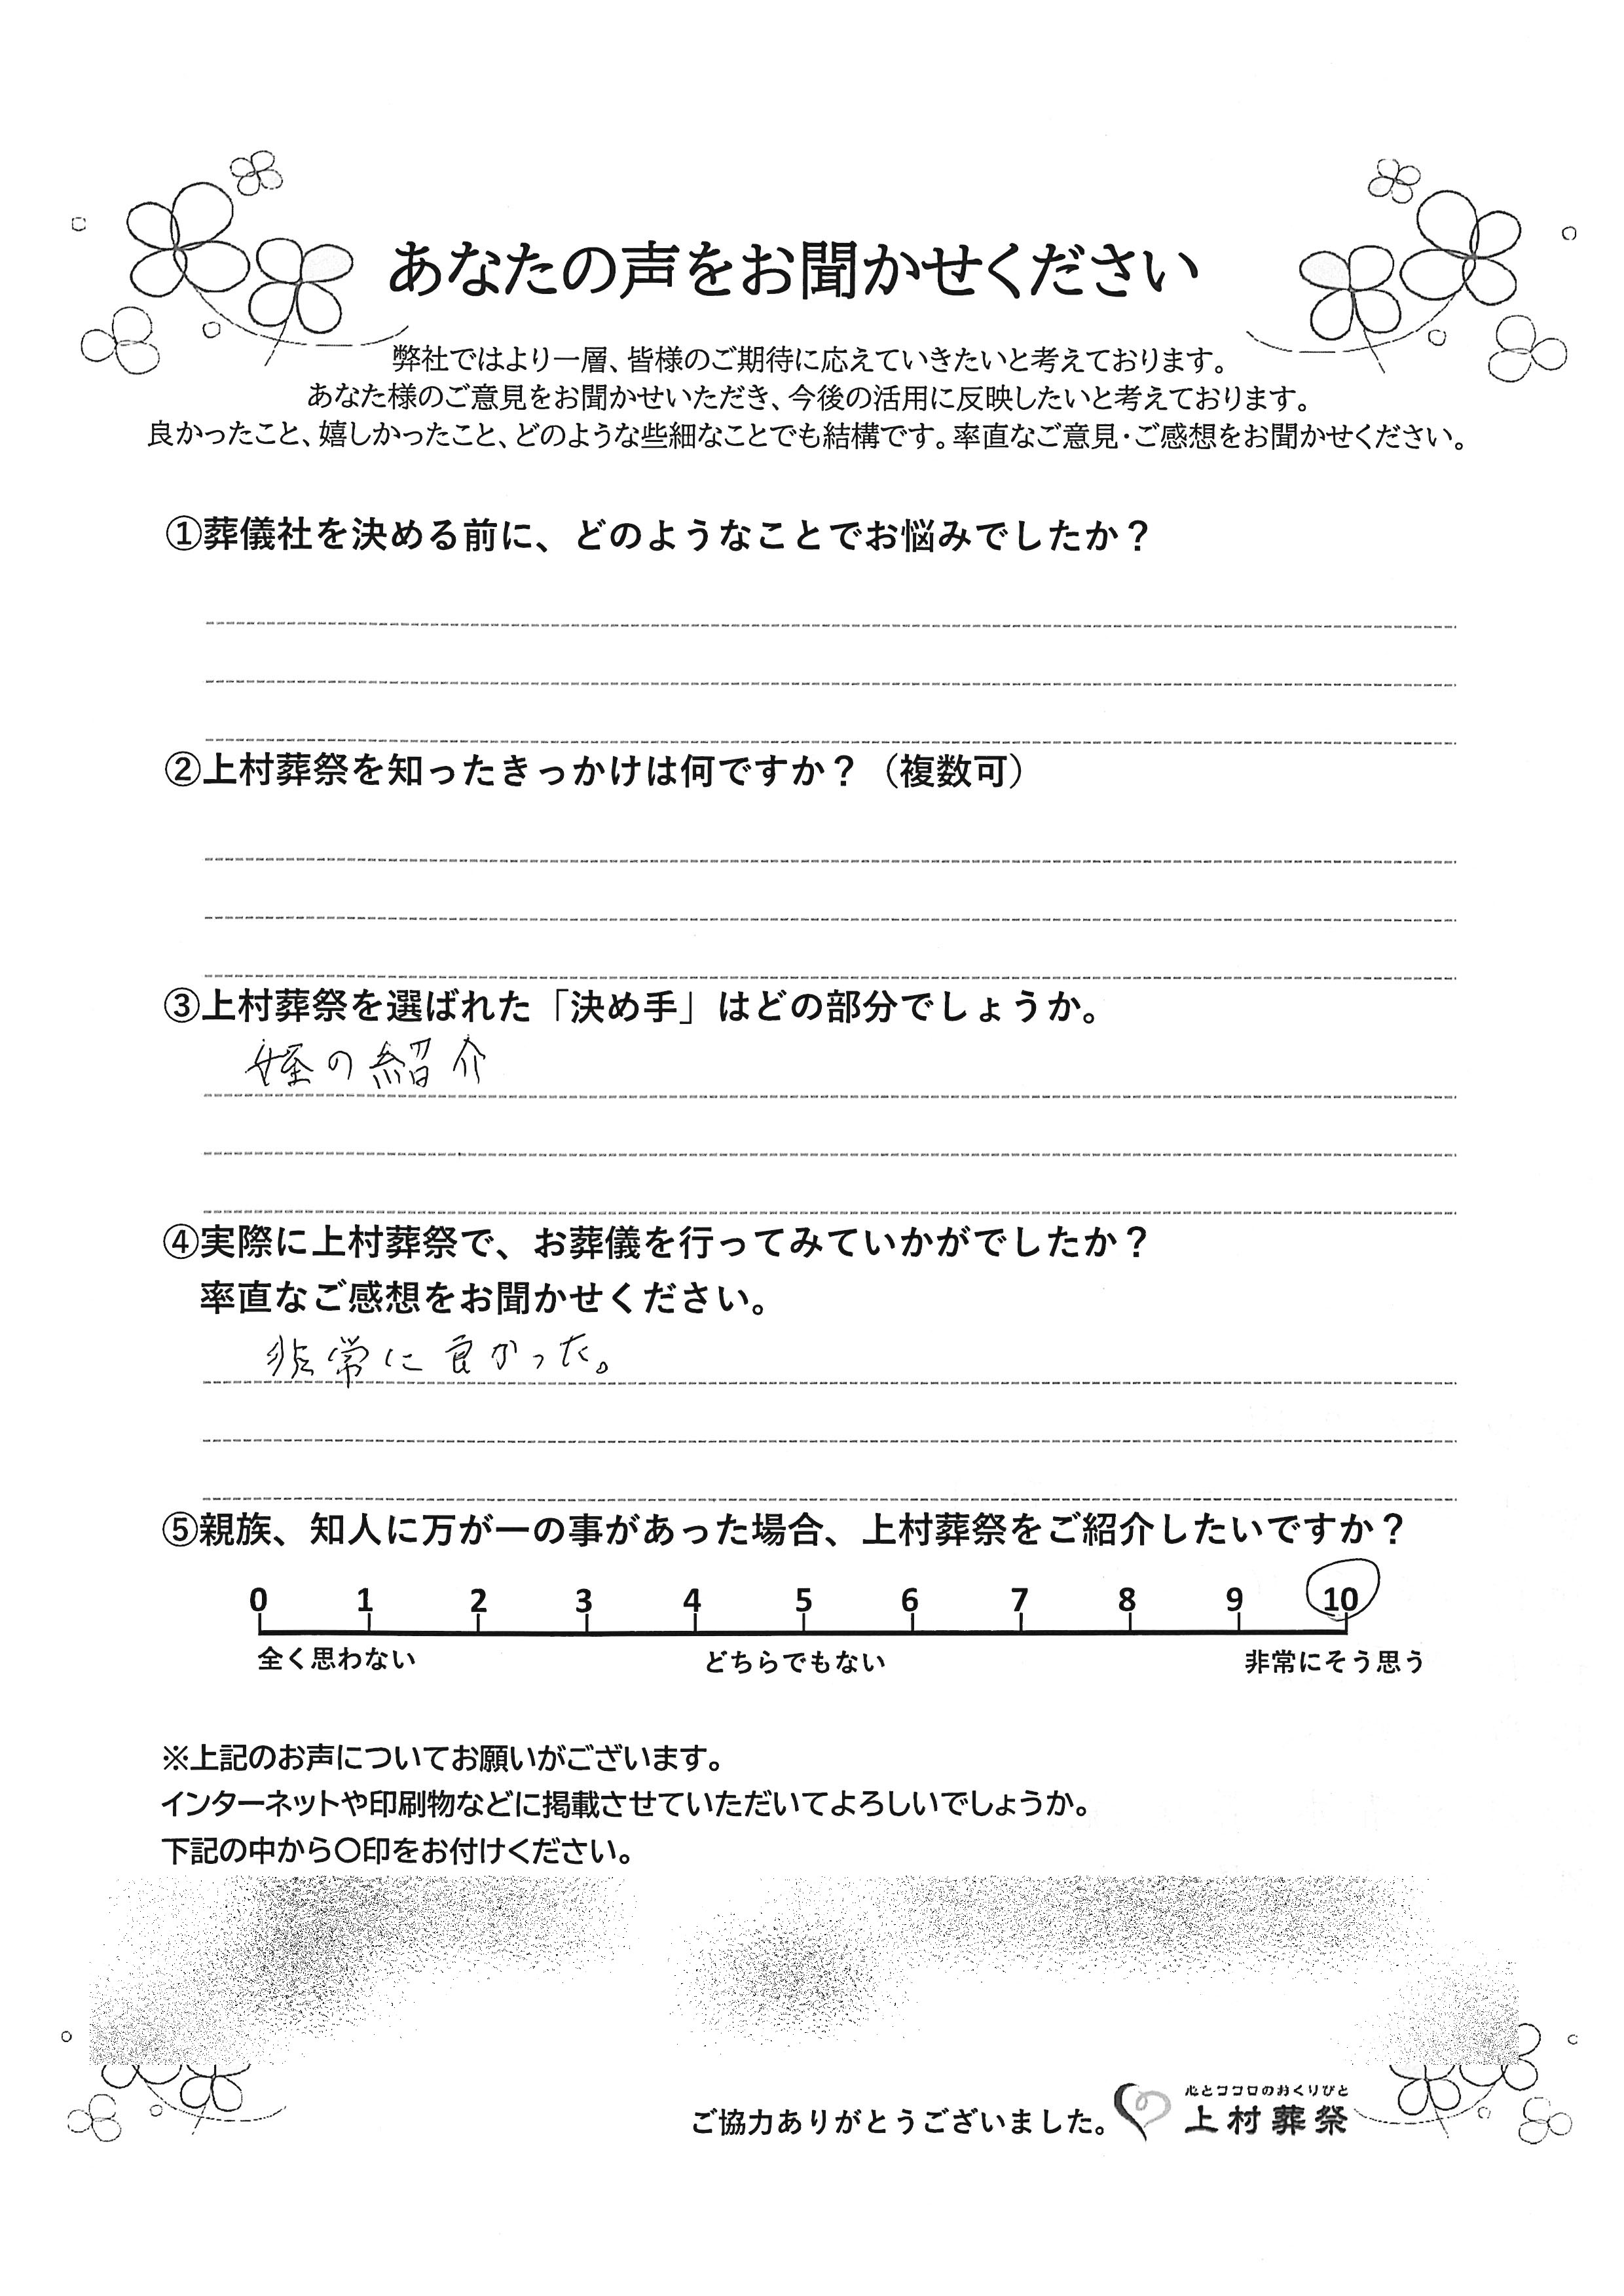 あなたの声をお聞かせください
弊社ではより一層、皆様のご期待に応えていきたいと考えております。
あなた様のご意見をお聞かせいただき、今後の活用に反映したいと考えております。
良かったこと、嬉しかったこと、どのような些細なことでも結構です。率直なご意見・ご感想をお聞かせください。
①葬儀社を決める前に、どのようなことでお悩みでしたか？
②上村葬祭を知ったきっかけは何ですか？（複数可）
③上村葬祭を選ばれた「決め手」はどの部分でしょうか。
姪の紹介
④実際に上村葬祭で、お葬儀を行ってみていかがでしたか？
率直なご感想をお聞かせください。
非常に良かった。
⑤親族、知人に万が一の事があった場合、上村葬祭をご紹介したいですか？
0 1 2 3 4 5 6 7 8 9 10
全く思わない どちらでもない 非常にそう思う
※上記のお声についてお願いがございます。
インターネットや印刷物などに掲載させていただいてよろしいでしょうか。
下記の中から〇印をお付けください。
心とココロのおくりびと
ご協力ありがとうございました。 上村葬祭